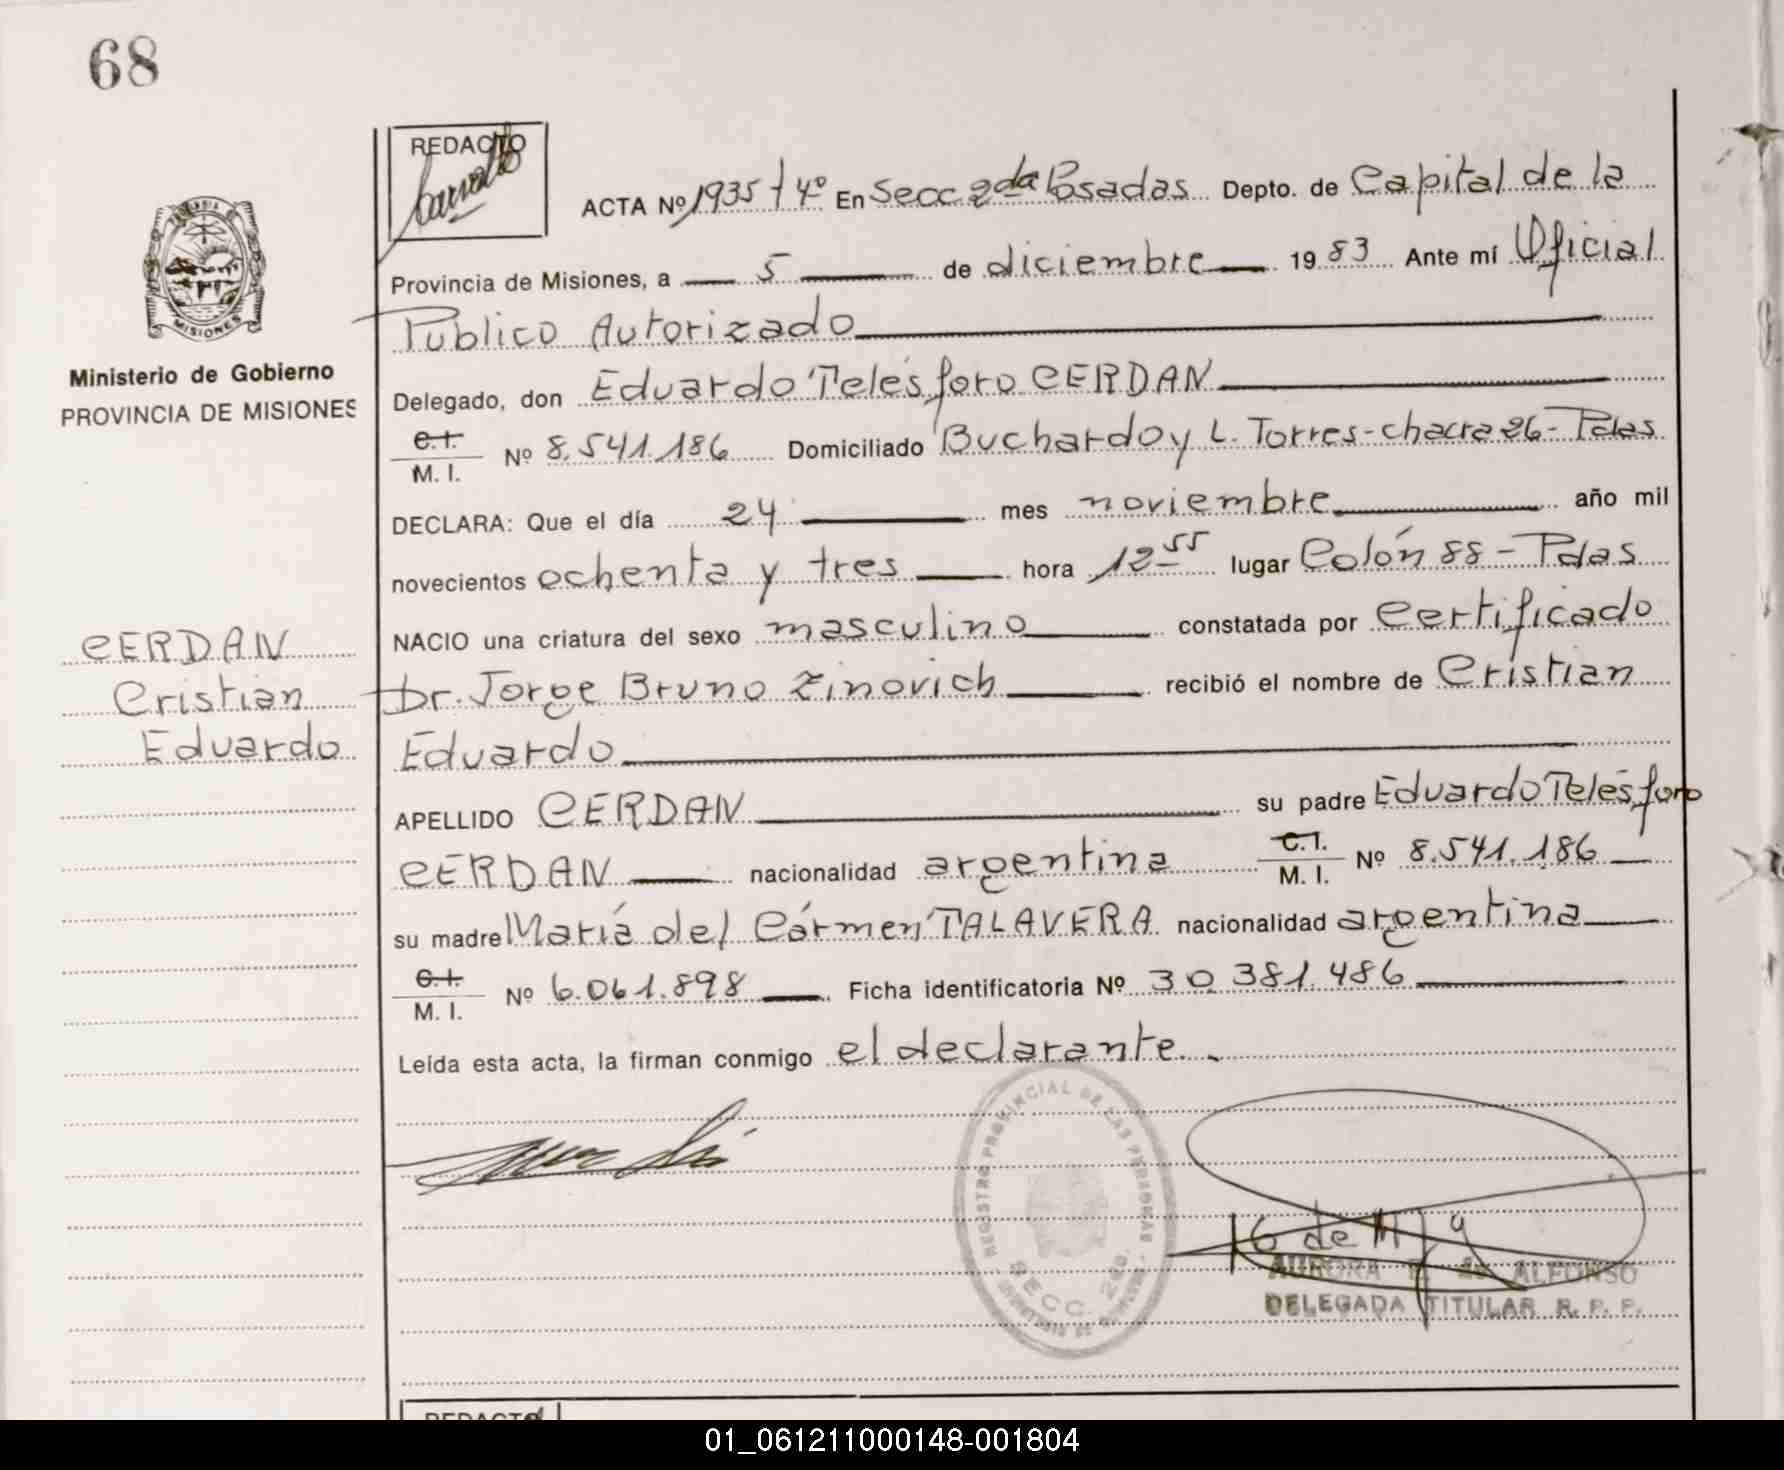 68
REDACTO
ACTA Nº 1935 t 4º En Secc 2da Posadas Depto. de Capital de la
Provincia de Misiones, a 5 de diciembre 1983 Ante mí Oficial
Público Autorizado
Delegado, don Eduardo Telésforo CERDAN
C.I. M. I. Nº 8.541.186 Domiciliado Buchardo y L. Torres-chacra 26-Pdas
DECLARA: Que el día 24 mes noviembre año mil
novecientos ochenta y tres hora 12 55 lugar Colón 88-Pdas
NACIO una criatura del sexo masculino constatada por certificado
Dr. Jorge Bruno Zinovich recibió el nombre de Cristian
Eduardo
APELLIDO CERDAN su padre Eduardo Telésforo
CERDAN nacionalidad argentina C.I. M. I. Nº 8.541.186
su madre María del Cármen TALAVERA nacionalidad argentina
C.I. M. I. Nº 6.061.898 Ficha identificatoria Nº 30.381.486
Leída esta acta, la firman conmigo el declarante.
MISIONES
Ministerio de Gobierno
PROVINCIA DE MISIONES
CERDAN
Cristian
Eduardo
REGISTRO PROVINCIAL DE LAS PERSONAS
SECC. 2da.
AURORA ALFONSO
DELEGADA TITULAR R. P. P.
REDACTO
01_061211000148-001804